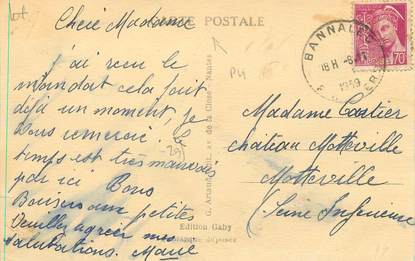 Chère Madame
CARTE POSTALE
j'ai reçu le
mandat cela fait
déjà un moment, je
vous remercie. Le
temps est très mauvais
par ici Bons
Baisers aux petites
Veuillez agréer mes
salutations. Marie
PH
BANNALEC
18 H
1939
70
Madame Castier
château Motteville
Motteville
Seine Inférieure
G. Artaud, av. de la Close Nantes
Edition Gaby
Marque déposée